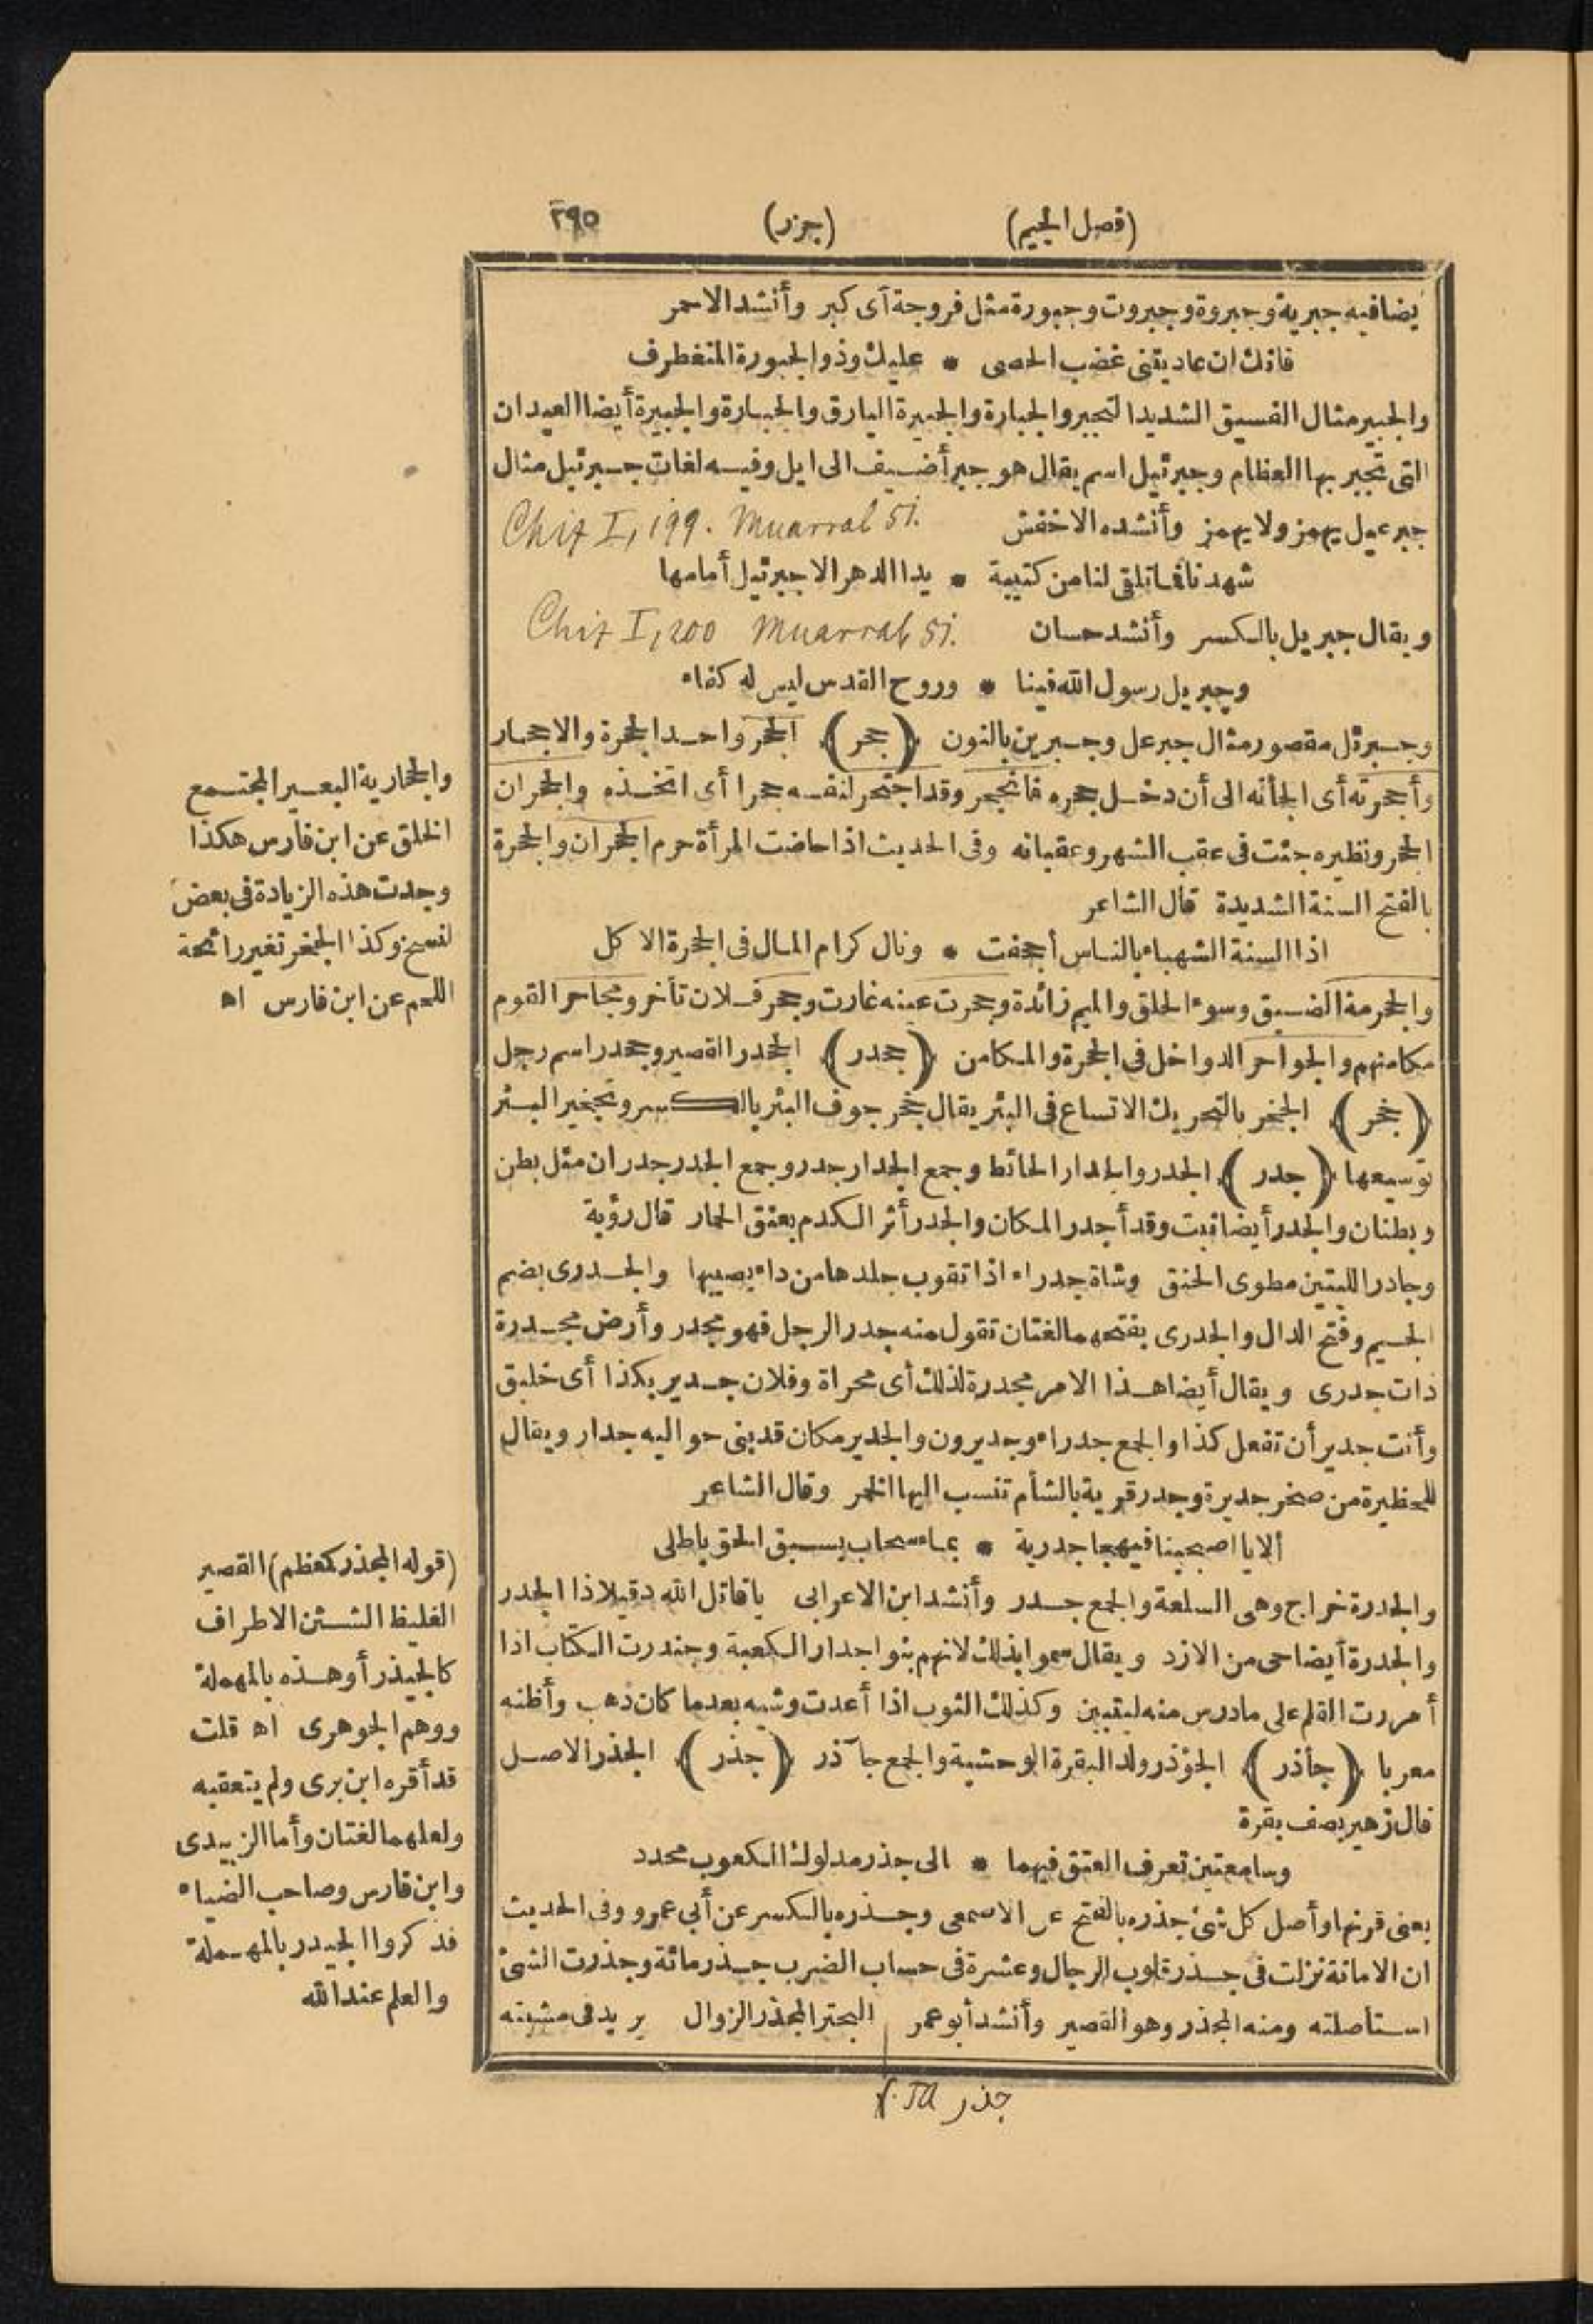 (فصل الجيم) (جزر) ٢٩٥
يضافيه جبرية وجبروة وجبروت وجبورة مثل فروجة أى كبر وأنشد الاحمر
فانك ان عاديتنى غضب الحصى * عليك وذو الجبورة المتغطرف
والجبير مثال الفسيق الشديد التجبر والجبارة والجبيرة اليارق والجبارة والجبيرة أيضا العيدان
التى تجبر بها العظام وجبرئيل اسم يقال هو جبر أضيف الى ايل وفيه لغات جبرئيل مثال
جبرعيل يهمز ولا يهمز وأنشده الاخفش Chif I, 199. Muarrab 51.
شهدنا فما تلقى لنا من كتيبة * يدا الدهر الا جبرئيل أمامها
ويقال جبريل بالكسر وأنشد حسان Chif I, 200 Muarrab 51.
وجبريل رسول الله فينا * وروح القدس ليس له كفاء
وجبرئل مقصور مثال جبرعل وجبرين بالنون (جحر) الجحر واحد الجحرة والاجحار
وأجحرته أى الجأته الى أن دخل جحره فانجحر وقد اجتحر لنفسه جحرا أى اتخذه والجحران
الجحر ونظيره جئت فى عقب الشهر وعقبانه وفى الحديث اذا حاضت المرأة حرم الجحران والجحرة
بالفتح السنة الشديدة قال الشاعر
اذا السنة الشهباء بالناس أجحفت * ونال كرام المال فى الجحرة الاكل
والجحرمة الضيق وسوء الخلق والميم زائدة وجحرت عينه غارت وجحر فلان تأخر ومجاحر القوم
مكامنهم والجواحر الدواخل فى الجحرة والمكامن (جحدر) الجحدر القصير وجحدر اسم رجل
(جخر) الجخر بالتحريك الاتساع فى البئر يقال جخر جوف البئر بالكسر وتجخير البئر
توسيعها (جدر) الجدر والجدار الحائط وجمع الجدار جدر وجمع الجدر جدران مثل بطن
وبطنان والجدر أيضا نبت وقد أجدر المكان والجدر أثر الكدم بعنق الحمار قال رؤبة
وجادر الليتين مطوى الحنق وشاة جدراء اذا تقوب جلدها من داء يصيبها والجدرى بضم
الجيم وفتح الدال والجدرى بفتحهما لغتان تقول منه جدر الرجل فهو مجدر وأرض مجدرة
ذات جدرى ويقال أيضا هذا الامر مجدرة لذلك أى محراة وفلان جدير بكذا أى خليق
وأنت جدير أن تفعل كذا والجمع جدراء وجديرون والجدير مكان قد بنى حواليه جدار ويقال
للحظيرة من صخر جديرة وجدر قرية بالشأم تنسب اليها الخمر وقال الشاعر
ألا يا اصبحينا فيهجا جدرية * بماء سحاب يسبق الحق باطلى
والجدرة خراج وهى السلعة والجمع جدر وأنشد ابن الاعرابى ياقاتل الله دقيلا ذا الجدر
والجدرة أيضا حى من الازد ويقال سموا بذلك لانهم بنوا جدار الكعبة وجندرت الكتاب اذا
أمررت القلم على ما درس منه ليتبين وكذلك الثوب اذا أعدت وشيه بعدما كان ذهب وأظنه
معربا (جأذر) الجؤذر ولد البقرة الوحشية والجمع جآذر (جذر) الجذر الاصل
قال زهير يصف بقرة
وسامعتين تعرف العتق فيهما * الى جذر مدلوك الكعوب محدد
يعنى قرنها وأصل كل شئ جذره بالفتح عن الاصمعى وجذره بالكسر عن أبى عمرو وفى الحديث
ان الامانة نزلت فى جذر قلوب الرجال وعشرة فى حساب الضرب جذر مائة وجذرت الشئ
استأصلته ومنه المجذر وهو القصير وأنشد أبو عمر البحتر المجذر الزوال يريد فى مشيته
جذر
والجحارية البعير المجتمع
الخلق عن ابن فارس هكذا
وجدت هذه الزيادة فى بعض
لنسخ وكذا الجمغر تغير رائحة
اللحم عن ابن فارس اه
(قوله المجذر كمعظم) القصير
الغليظ الشثن الاطراف
كالجيذر أو هذه بالمهملة
ووهم الجوهرى اه قلت
قد أقره ابن برى ولم يتعقبه
ولعلهما لغتان وأما الزبيدى
وابن فارس وصاحب الضياء
فذكروا الجيدر بالمهملة
والعلم عند الله